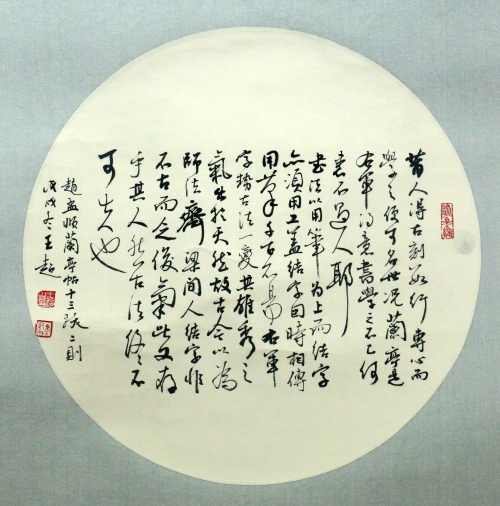 昔人得古刻数行專心而
學之便可名世況蘭亭是
右軍得意書學之不已何
患不過人耶
書法以用筆為上而結字
亦須用工盖結字因時相傳
用筆千古不易右軍
字勢古法一變其雄秀之
氣出於天然故古今以為
師法齊梁間人結字非
不古而乏俊氣此又存
乎其人然古法終不
可失也
趙孟頫蘭亭帖十三跋二則
戊戌冬王超